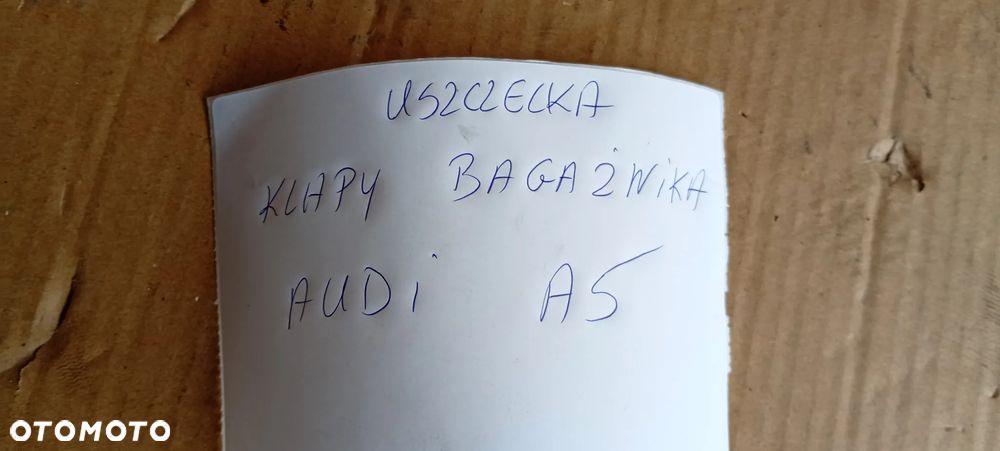 USZCZECKA
KLAPY BAGAŻNIKA
AUDi A5
OTOMOTO